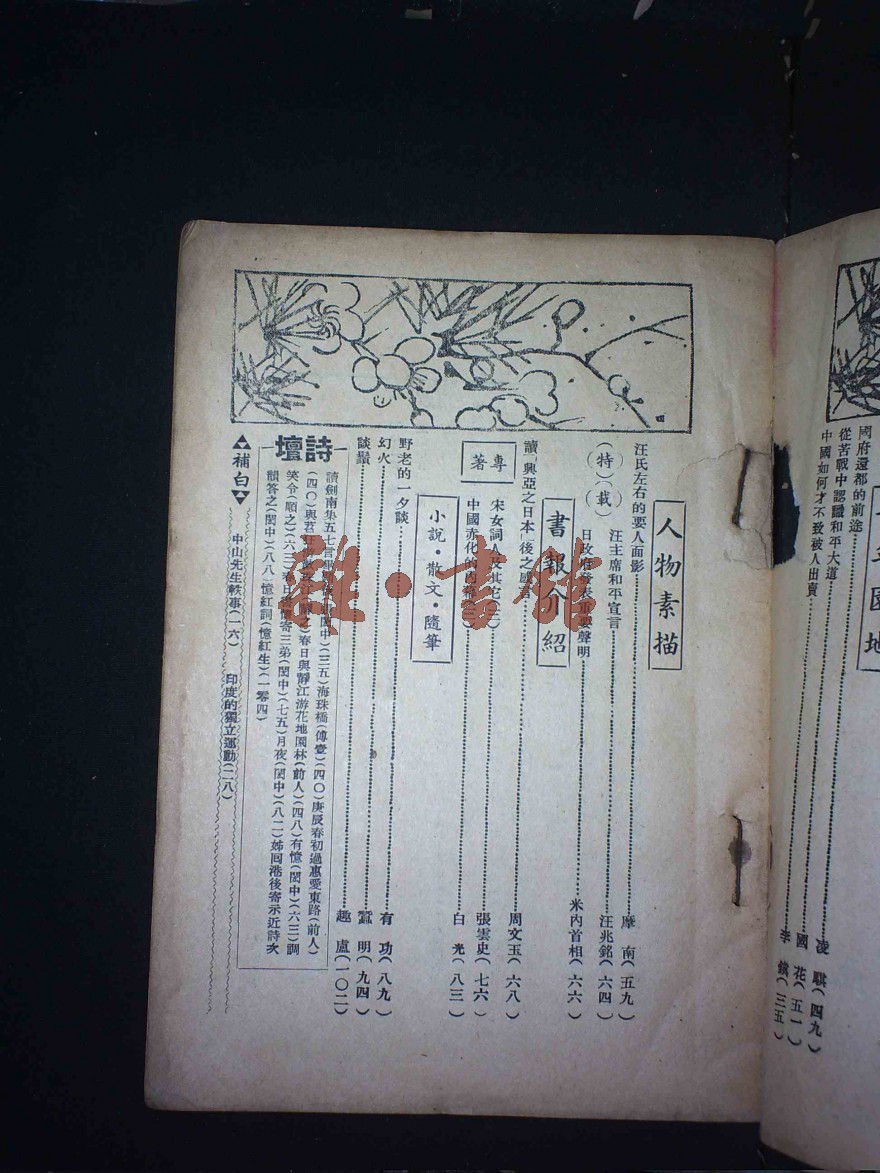 年園地
國府還都的前途 凌騏(四九)
從苦戰中認識和平大道 國花(五一)
中國如何才不致被人出賣 李鎮(三五)
人物素描
汪氏左右的要人面影 摩南(五九)
(特)(載)
汪主席和平宣言 汪兆銘(六四)
日政府發表重要聲明 米內首相(六六)
書報介紹
讀「興亞之日本」後之感言 周文玉(六八)
專著
宋女詞人及其它(二) 張雲史(七六)
中國赤化的內幕(二) 白光(八三)
小說·散文·隨筆
野老的一夕談 有功(八九)
幻火 蠶明(九四)
談鬚 趣盧(一〇二)
詩壇
讀劍南集五七言 (閩中)(三五)海珠橋(傅壹)(四〇)庚辰春初過惠愛東路(前人)
(四〇)與君 春日與靜江游花地園林(前人)(四八)有憶(閩中)(六三)調
笑令(順之)(六三)春日 寄三弟(閩中)(七五)月夜(閩中)(八二)姊囘港後寄示近詩次
韻答之(閩中)(八八)憶紅詞(憶紅生)(一零四)
補白
中山先生軼事(一六) 印度的獨立運動(二八)
雜·書館